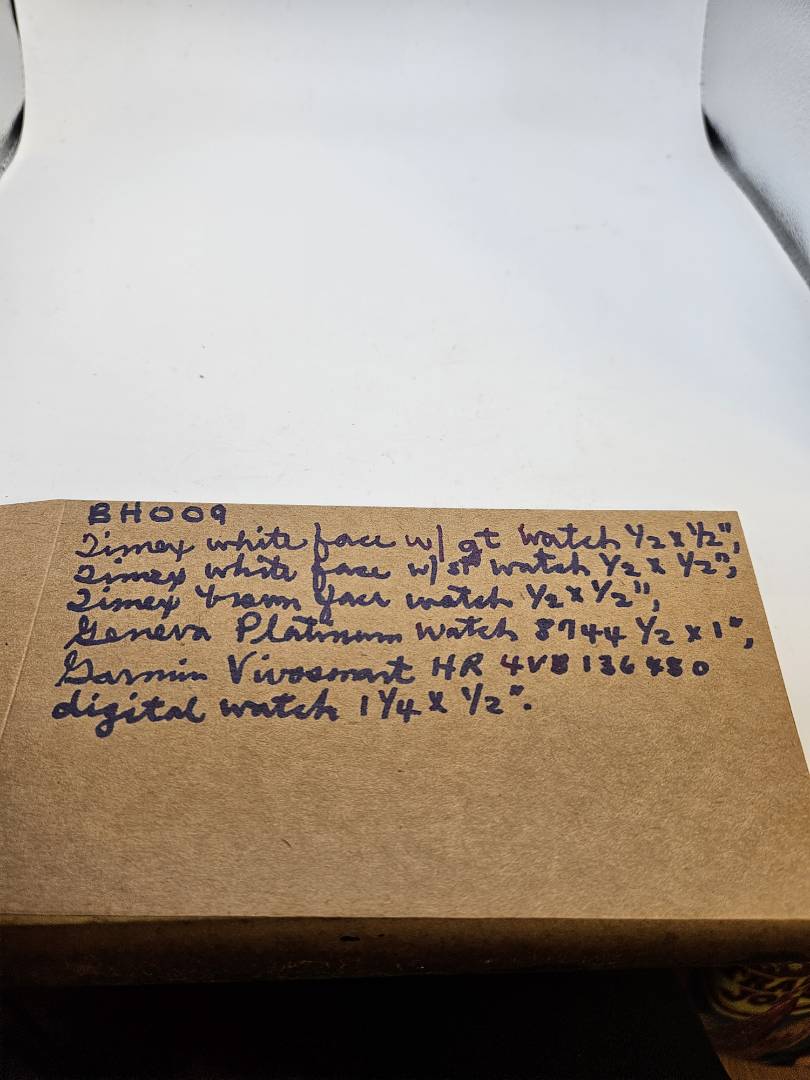 BH009
Timex white face w/ gt watch 1/2 x 1/2",
Timex white face w/ st watch 1/2 x 1/2",
Timex face watch 1/2 x 1/2",
Geneva Platinum Watch 8744 1/2 x 1",
Garmin Vivosmart HR
digital watch 1 1/4 x 1/2".